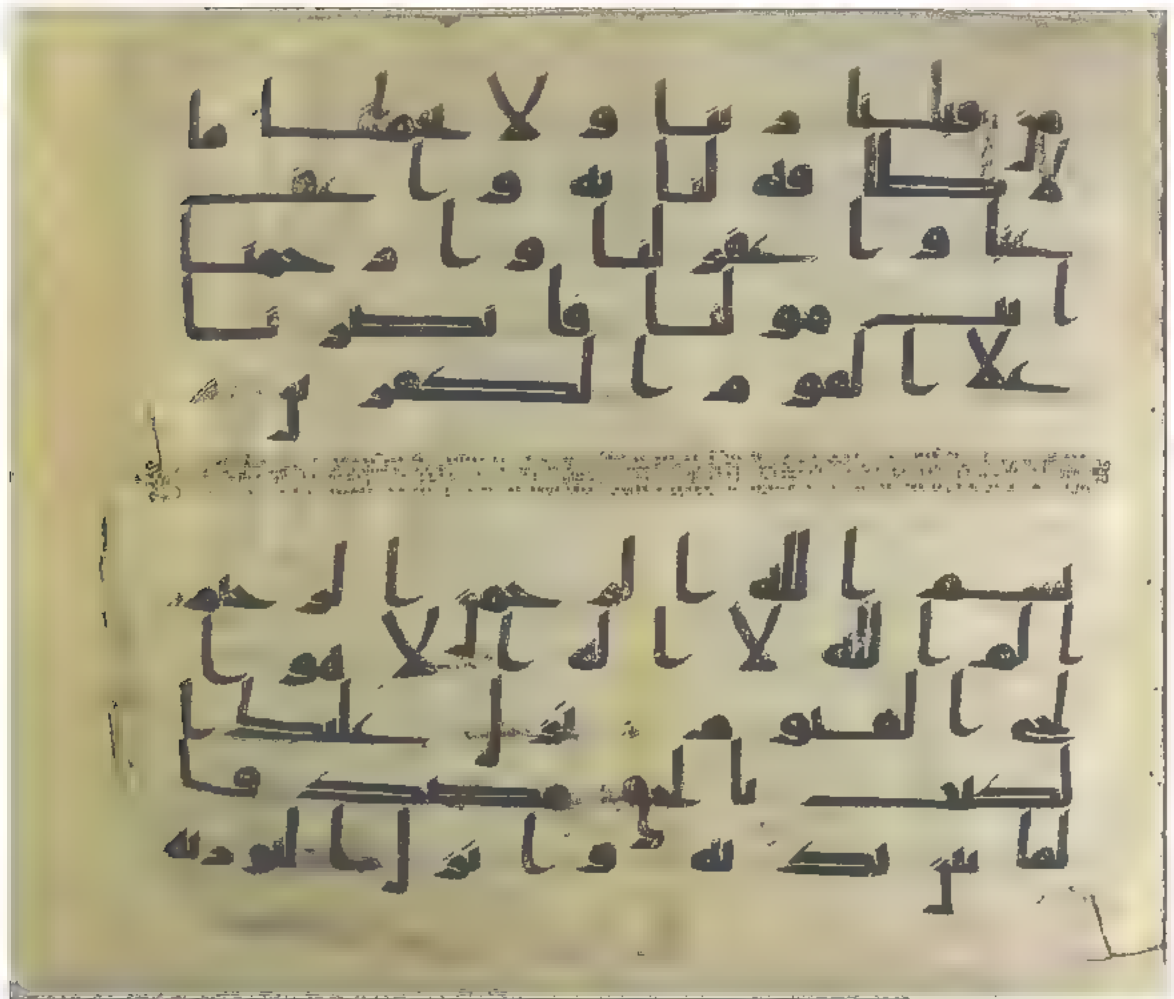 من قبلنا ربنا ولا تحملنا ما
لا طاقة لنا به واعف
عنا واغفر لنا وارحمنا
انت مولنا فانصرنا
علا القوم الكفرين
بسم الله الرحمن الرحيم
الم الله لا اله الا هو ا
لحي القيوم نزل عليك ا
لكتب بالحق مصدقا
لما بين يديه وانزل التورية